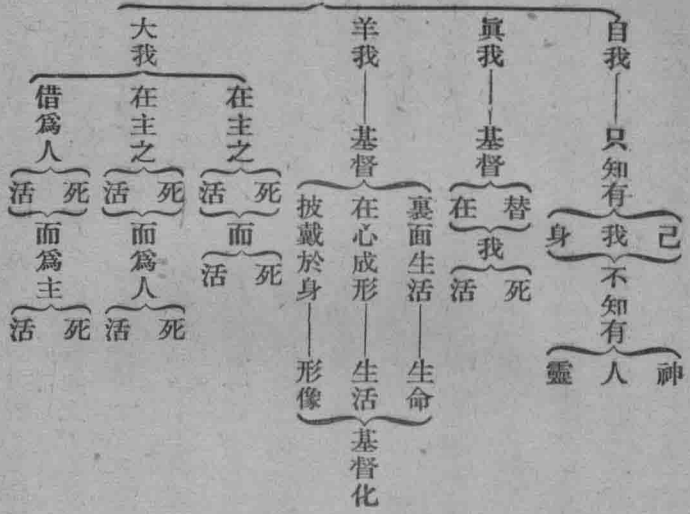 自我——只知有
己
我
身
不知有
神
人
靈
眞我——基督
替
在
我
死
活
羊我——基督
裏面生活——生命
在心成形——生活
披戴於身——形像
基督化
大我
在主之
死
活
而
死
活
在主之
死
活
而爲人
死
活
借爲人
死
活
而爲主
死
活